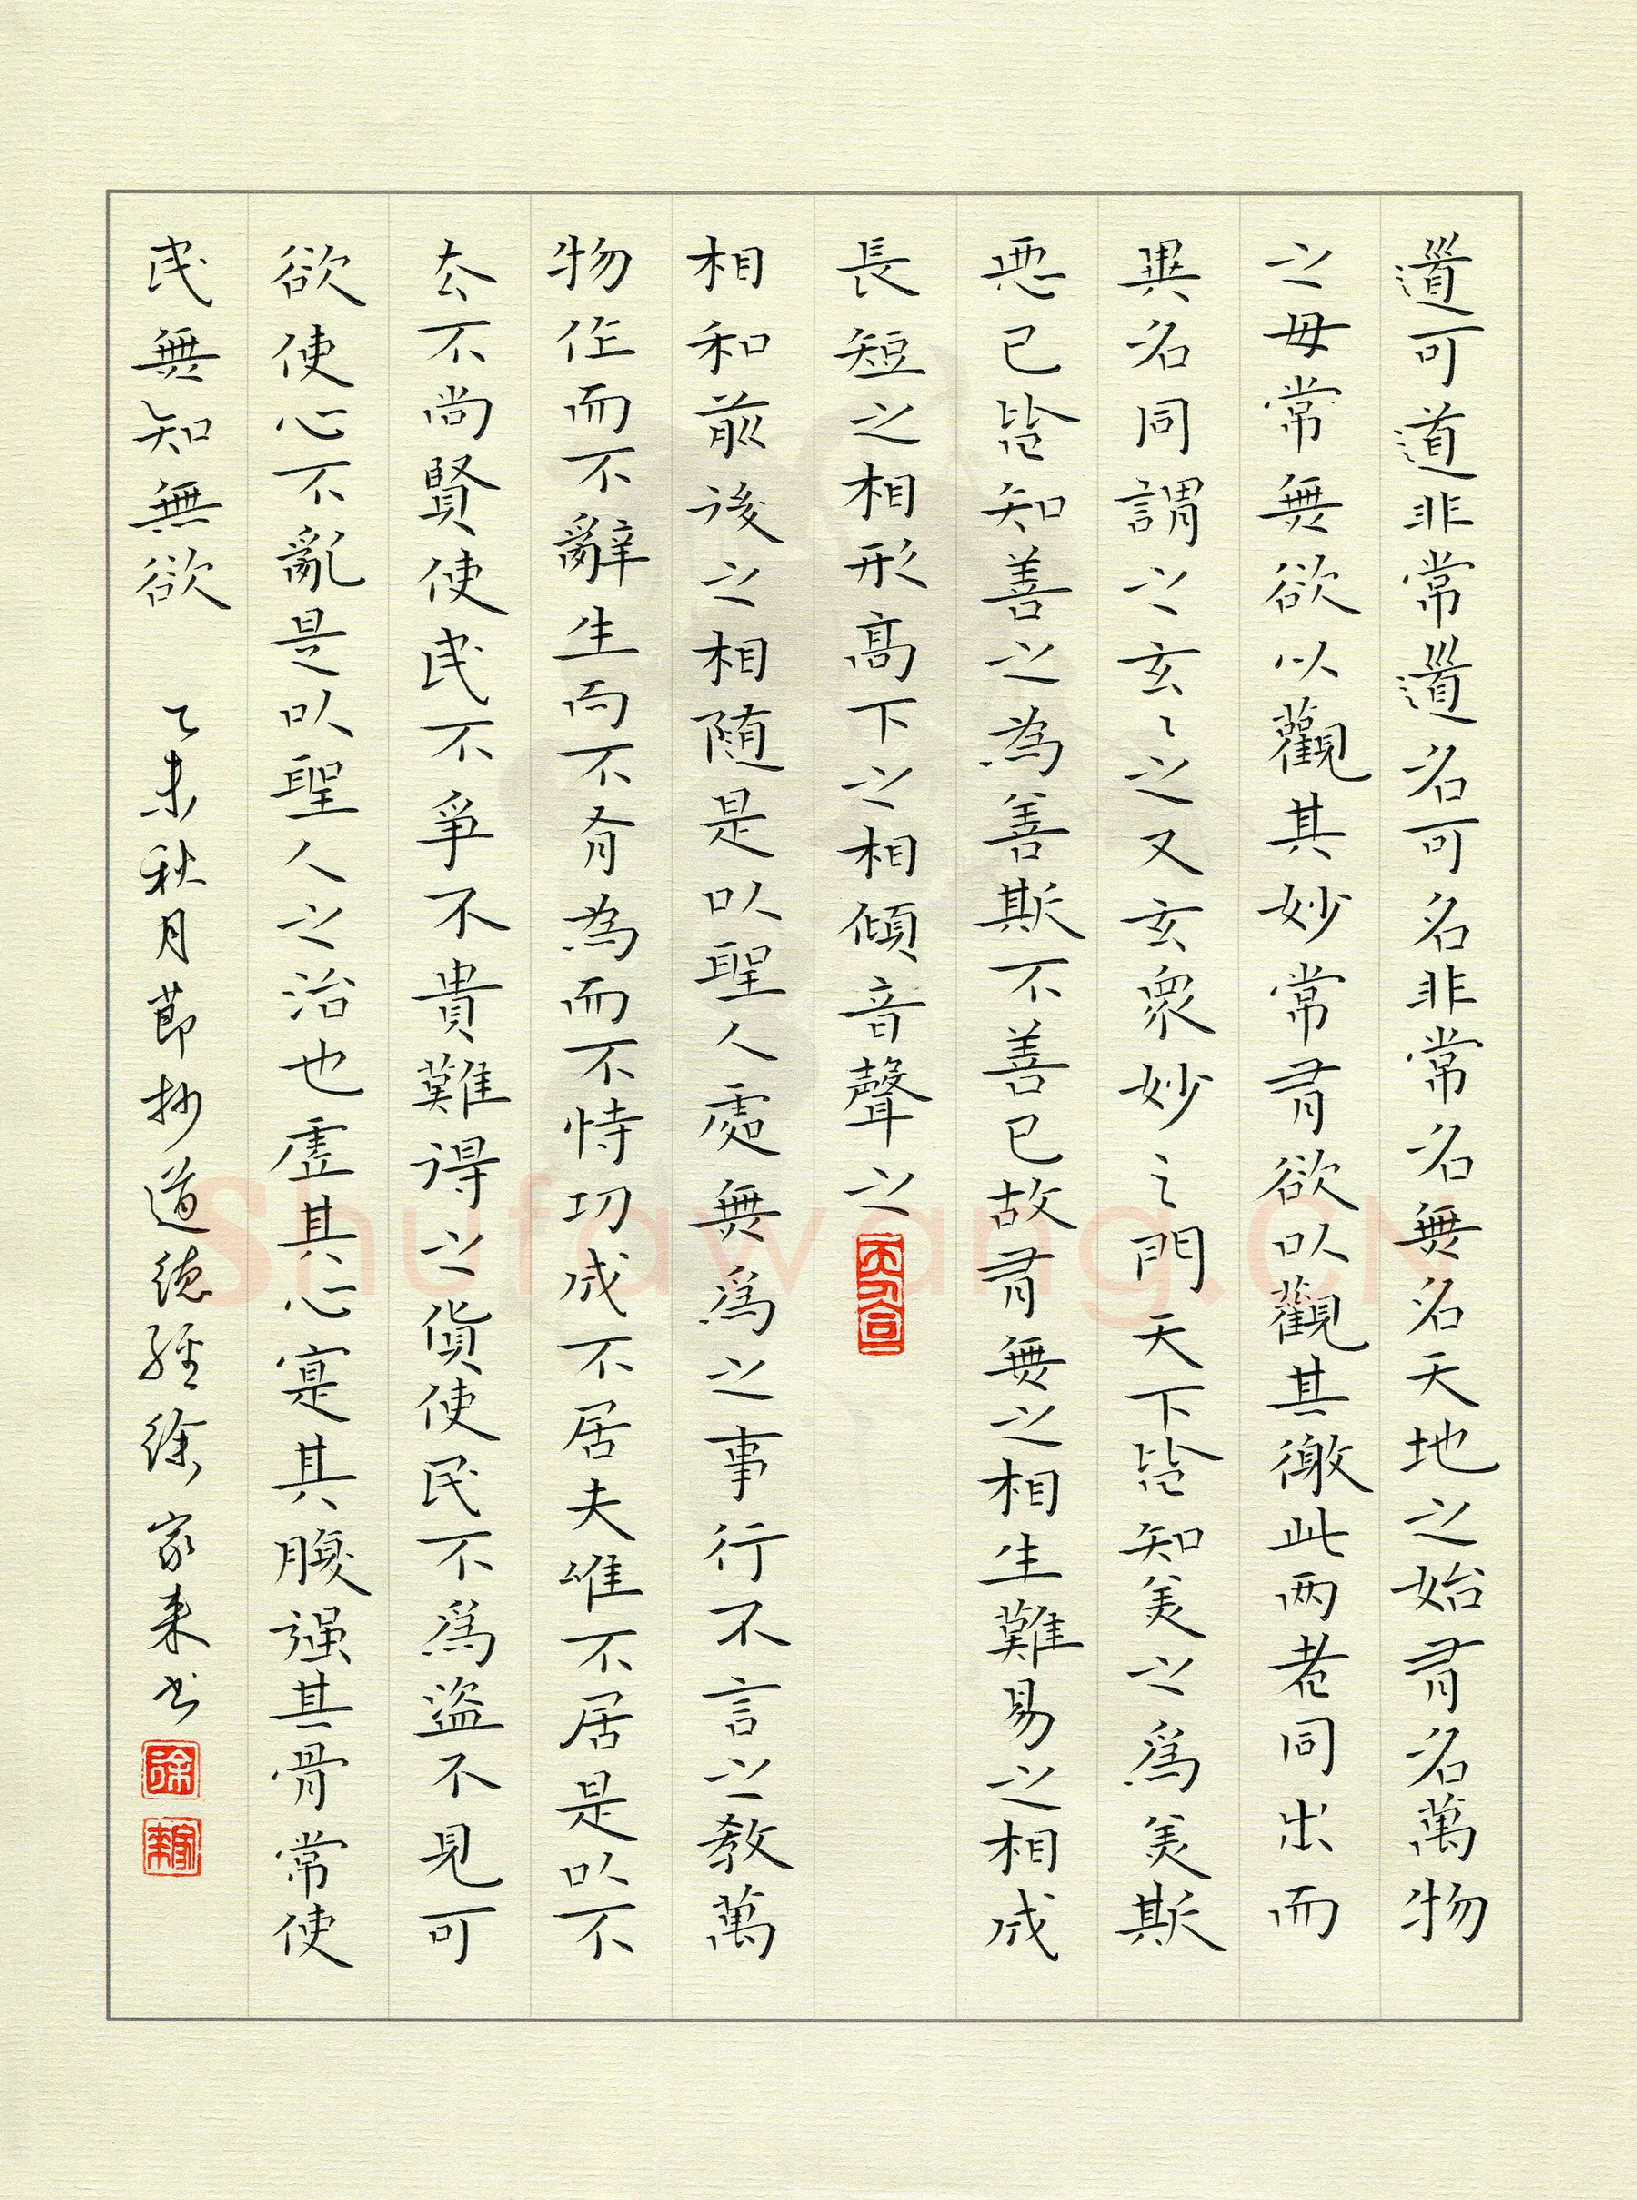 道可道道非常道名可名非常名無名天地之始有名萬物
之母常無欲以觀其妙常有欲以觀其徼此两者同出而
異名同謂之玄玄之又玄衆妙之門天下皆知美之爲美美斯
惡已皆知善之為善斯不善已故有無之相生難易之相成
長短之相形高下之相傾音聲之
相和前後之相随是以聖人處無爲之事行不言之教萬
物作而不辭生而不有為而不恃功成不居夫唯不居是以不
去不尚賢使民不爭不貴難得之貨使民不爲盜不見可
欲使心不亂是以聖人之治也虛其心寔其腹强其骨常使
民無知無欲 乙未秋月節抄道德經徐家来书
Shufawang.CN